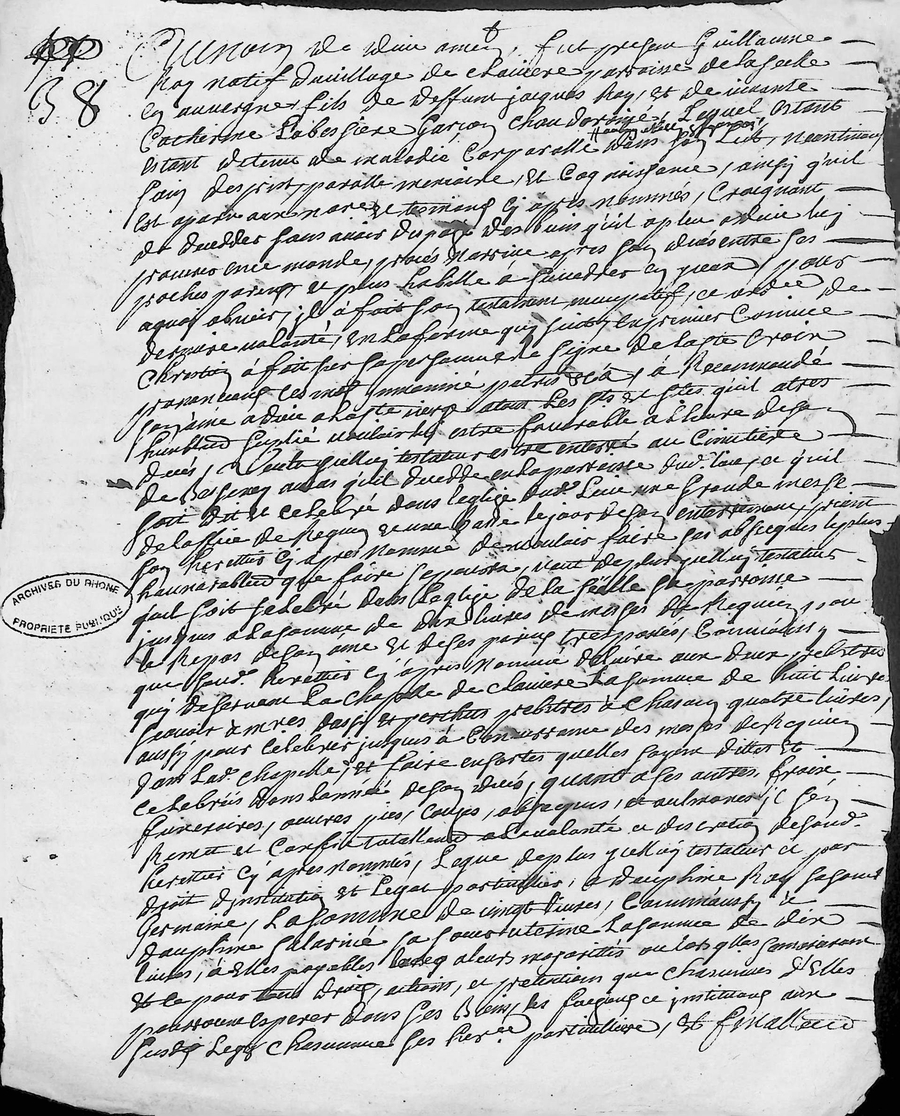 38
Au nom de dieu amen, fut present Guillaume
Roy natif du village de claviere parroisse de
en auvergne, fils de deffunt jacques Roy, et de vivante
Catherine Labessiere garçon chauderonié, Lequel estant
estant detenu de maladie Corporelle dans son Lict, neantmoins
sain desprit, parolle memoire, et Cognoissance, ainsy qu'il
est aparu aux no.re et temoins cy apres nommés, Craignant
de dcedder sans avoir disposé des biens qu'il a plu a dieu luy
en ce monde, procès n'arrive apres son deces entre ses
proches parens et plus habille a succedder en yceux, pour
a quoy obvier, il à fait son testament nuncupatif, et ordce de
derniere volonté, en la forme qui suit, En premier Comme
Chrestien à fait sur sa personne le signe de la ste Croix
prononceant ces mots innominé patris &ca, à Recommandé
son ame a dieu a la ste vierge a tous les sts et stes, qu'il a tres
humblemt suplié vouloir luy estre favorable a l'heure de son
deces, Veut yelluy testateur estre enterré au Cimetiere
de au cas qu'il decedde en la parroisse dud. Lieu, et qu'il
soit dit et celebré dans l'eglize dud. Lieu une grande messe
de la de Requiem et une basse le jour de son enterrement, priant
son heretier cy apres nommé de vouloir faire ses obseques le plus
hannorablemt que faire se poura, veut de plus yelluy testateur
qu'il soit celebré dans l'eglize de la sa parroisse
jusques a la somme de dix livres de messes de Requiem pour
le Repos de son ame et de ses parens trepassés, Comm'aussy
que sond. heretier cy apres nommé delivre aux deux prebstres
quy deservent La Chapelle de claviere La somme de huit Livres
scavoir à mres et prebtres à Chacun quatre livres,
aussy pour celebrer jusques à Concurrance des messes de Requiem
dans Lad. Chapelle, et faire en sortes quelles soyent dittes et
celebrées dans l'année de son deces, quant a ses autres fraix
funeraires, oeuvres pies, obseques, et aulmones, il s'en
Remet et Confie totallemt a la volonté et discretion de sond.
heretier cy apres nommés, Legue de plus yelluy testateur et par
droit d'institution et Legat particullier, a dauphine Roy sa soeur
Germaine, La somme de vingt livres, Comm'aussy à
dauphine sa soeur uterine La somme de dix
livres, à Elles payables a leurs majorités ou lors qu'elles
et ce pour tous droits, actions, et pretentions que chacunnes d'Elles
pouroient esperer dans ses Biens, les faizant et instituant aux
susds Legs chacunnne ses her.es particulliere, et finallemt
ARCHIVES DU RHONE
PROPRIÉTÉ PUBLIQUE